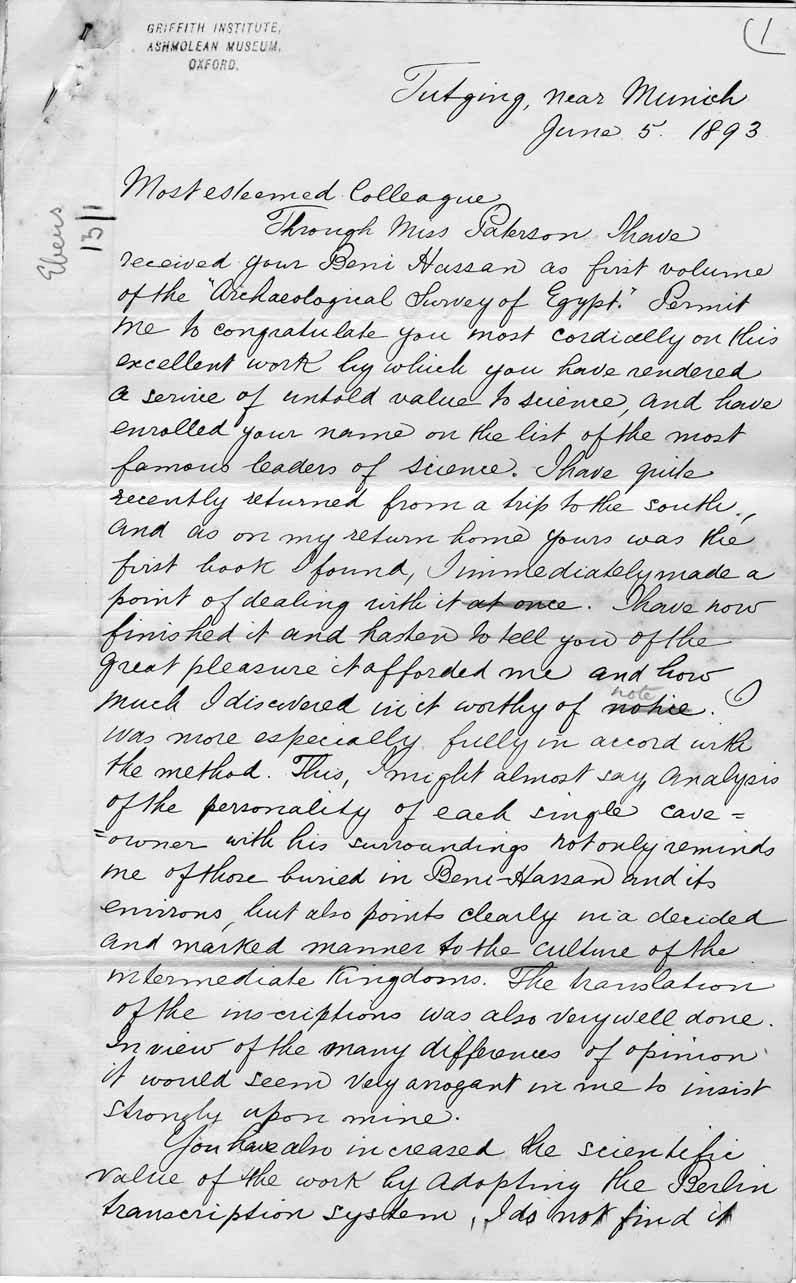 GRIFFITH INSTITUTE,
ASHMOLEAN MUSEUM,
OXFORD.
1
Tutzing, near Munich
June 5. 1893
Ebers
13/1
Most esteemed Colleague
Through Miss Paterson I have
received your Beni Hassan as first volume
of the "Archaeological Survey of Egypt." Permit
me to congratulate you most cordially on this
excellent work by which you have rendered
a service of untold value to science, and have
enrolled your name on the list of the most
famous leaders of science. I have quite
recently returned from a trip to the south.,
and as on my return home yours was the
first book I found, I immediately made a
point of dealing with it at once. I have now
finished it and hasten to tell you of the
great pleasure it afforded me and how
much I discovered in it worthy of notice. I
note
was more especially fully in accord with
the method. This, I might almost say, analysis
of the personality of each single cave=
=owner with his surroundings not only reminds
me of those buried in Beni-Hassan and its
environs, but also points clearly in a decided
and marked manner to the culture of the
intermediate Kingdoms. The translation
of the inscriptions was also very well done.
In view of the many differences of opinion
it would seem very arrogant in me to insist
strongly upon mine.
You have also increased the scientific
value of the work by adopting the Berlin
transcription system, I do not find it